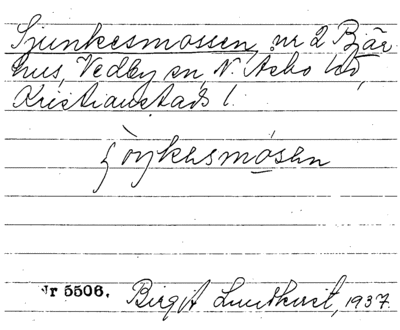 Sjunkesmossen, nr 2 Bjär
hus, Vedby sn, N. Asbo hd,
Kristianstads l.
Nr 5506. Birgit Lundkvist, 1937.